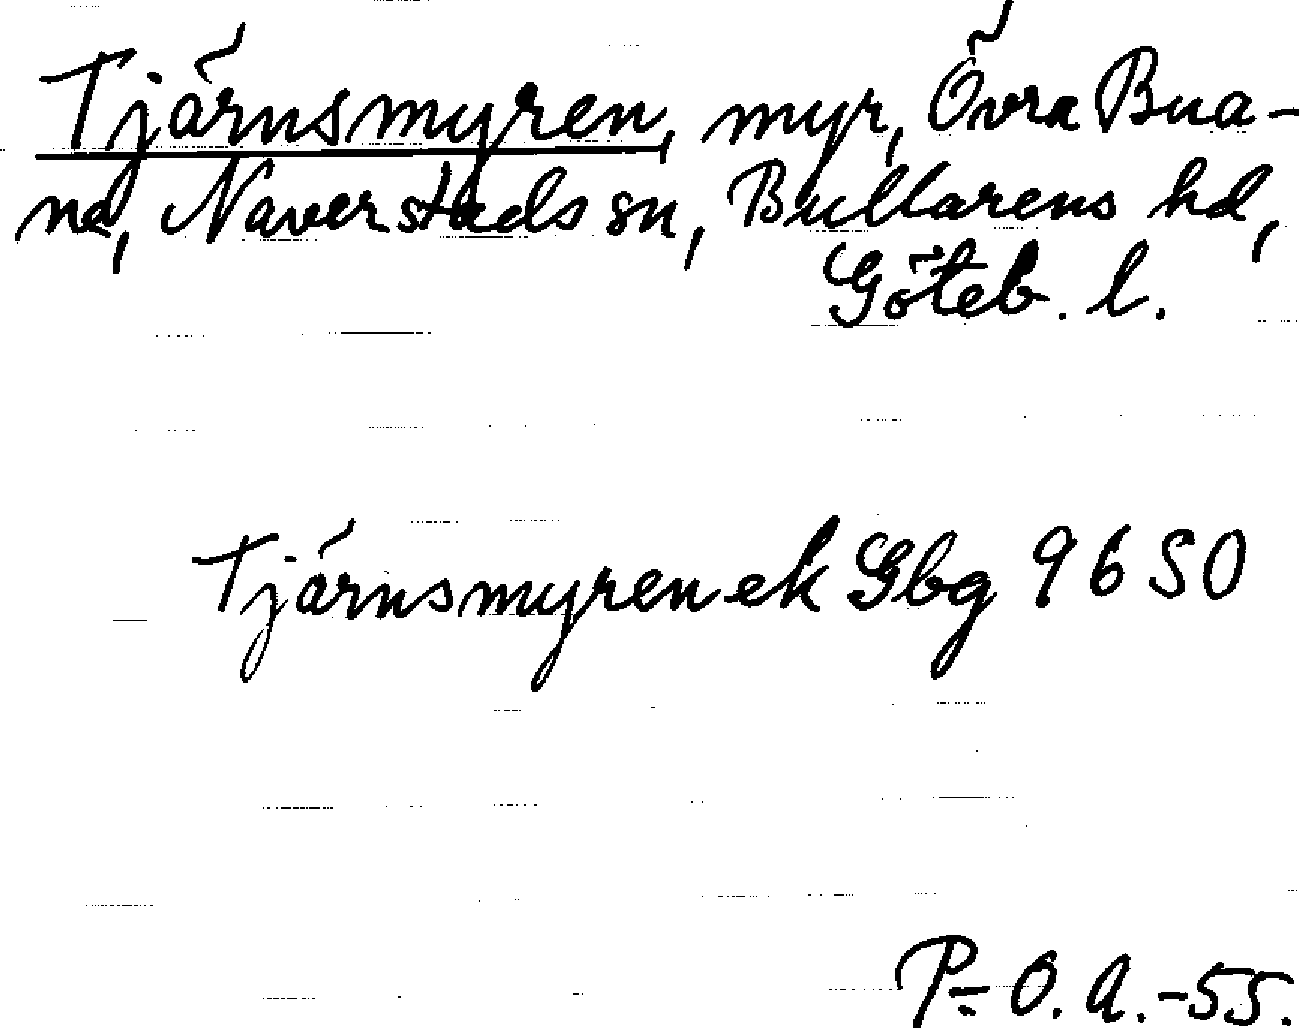 Tjärnsmyren, myr, Övra Bua-
na, Naverstads sn, Bullarens hd,
Göteb. l.
Tjärnsmyren ek Gbg 9650
P.-O. A.-55.